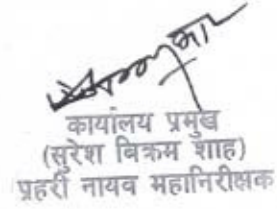 कार्यालय प्रमुख
(सुरेश बिक्रम शाह)
प्रहरी नायव महानिरीक्षक